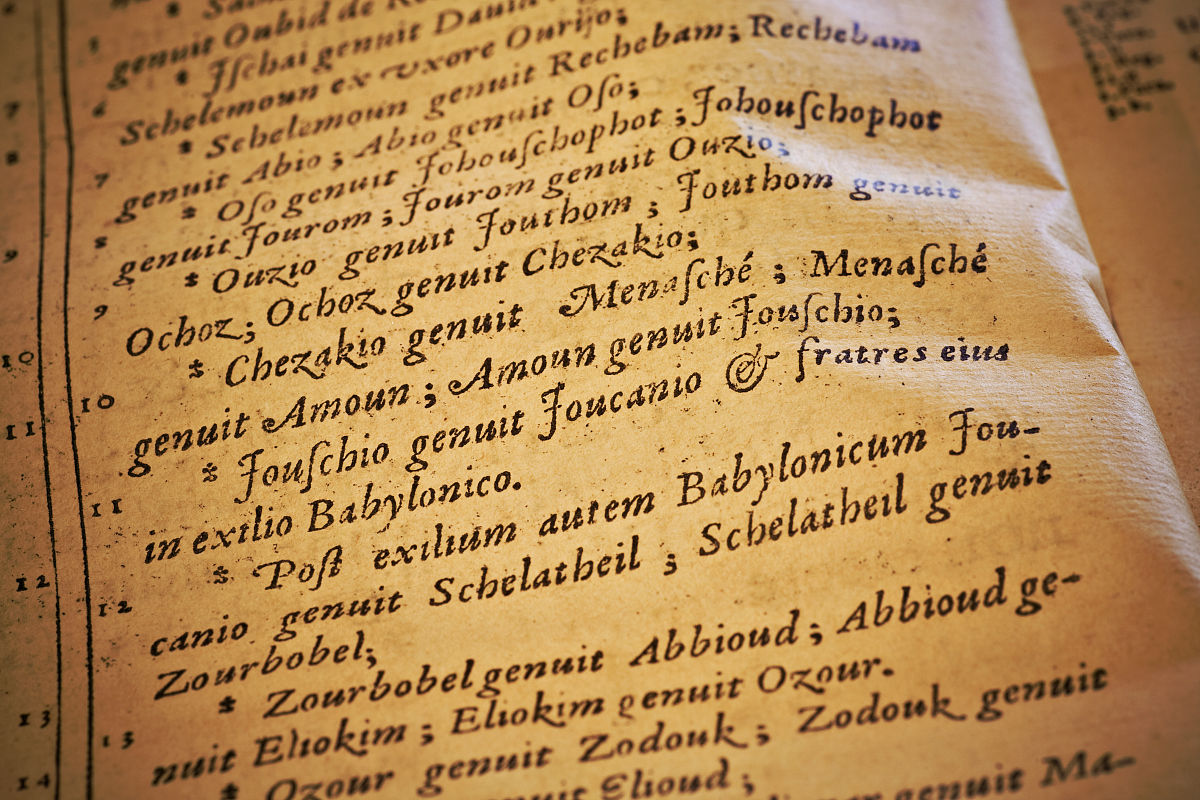 genuit Oubid de
* Jſchai genuit Dauid
Schelemoun ex vxore Ourijo;
6 * Schelemoun genuit Rechebam; Rechebam
genuit Abio; Abio genuit Oſo;
7 * Oſo genuit Johouſchophot; Johouſchophot
genuit Jourom; Jourom genuit Ouzio;
8 * Ouzio genuit Jouthom; Jouthom genuit
Ochoz; Ochoz genuit Chezakio;
9 * Chezakio genuit Menaſché; Menaſché
genuit Amoun; Amoun genuit Jouſchio;
10 * Jouſchio genuit Joucanio & fratres eius
in exilio Babylonico.
11 * Poſt exilium autem Babylonicum Jou-
canio genuit Schelatheil; Schelatheil genuit
12 Zourbobel;
* Zourbobel genuit Abbioud; Abbioud ge-
13 nuit Eliokim; Eliokim genuit Ozour.
* Ozour genuit Zodouk; Zodouk genuit
14 Elioud; genuit Ma-